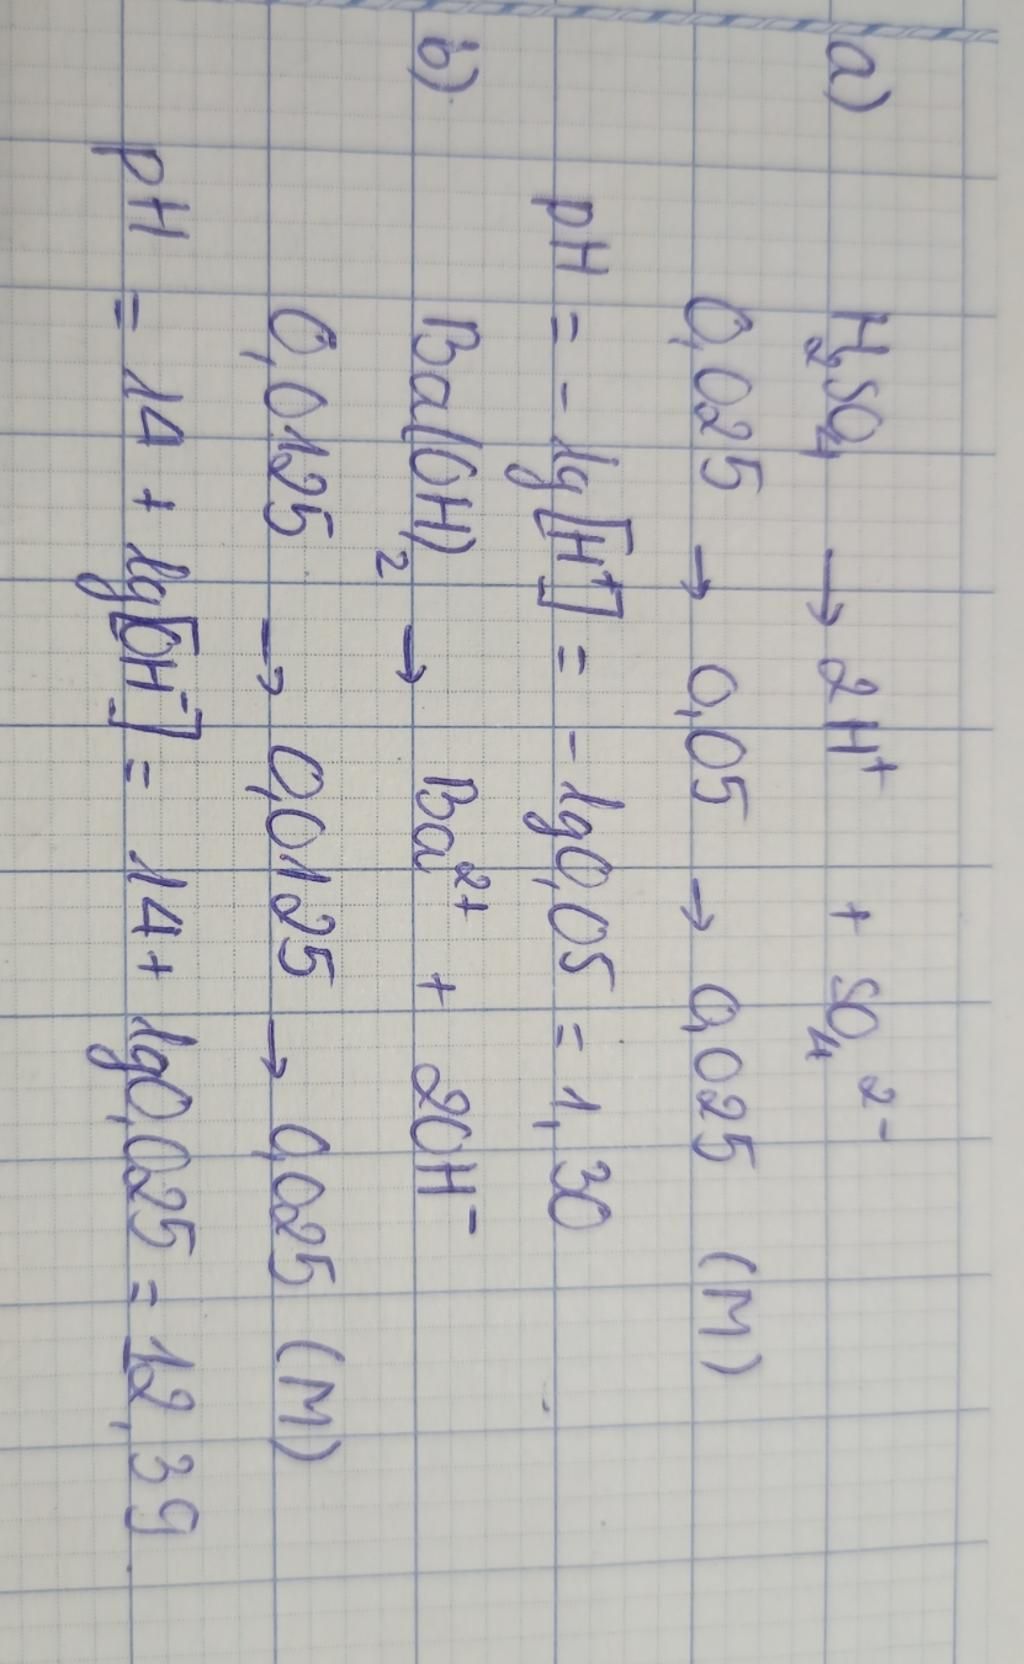 a) H₂SO₄ → 2H⁺ + SO₄²⁻
0,025 → 0,05 → 0,025 (M)
pH = -lg[H⁺] = -lg0,05 = 1,30
b) Ba(OH)₂ → Ba²⁺ + 2OH⁻
0,0125 → 0,0125 → 0,025 (M)
pH = 14 + lg[OH⁻] = 14+ lg0,025 = 12,39